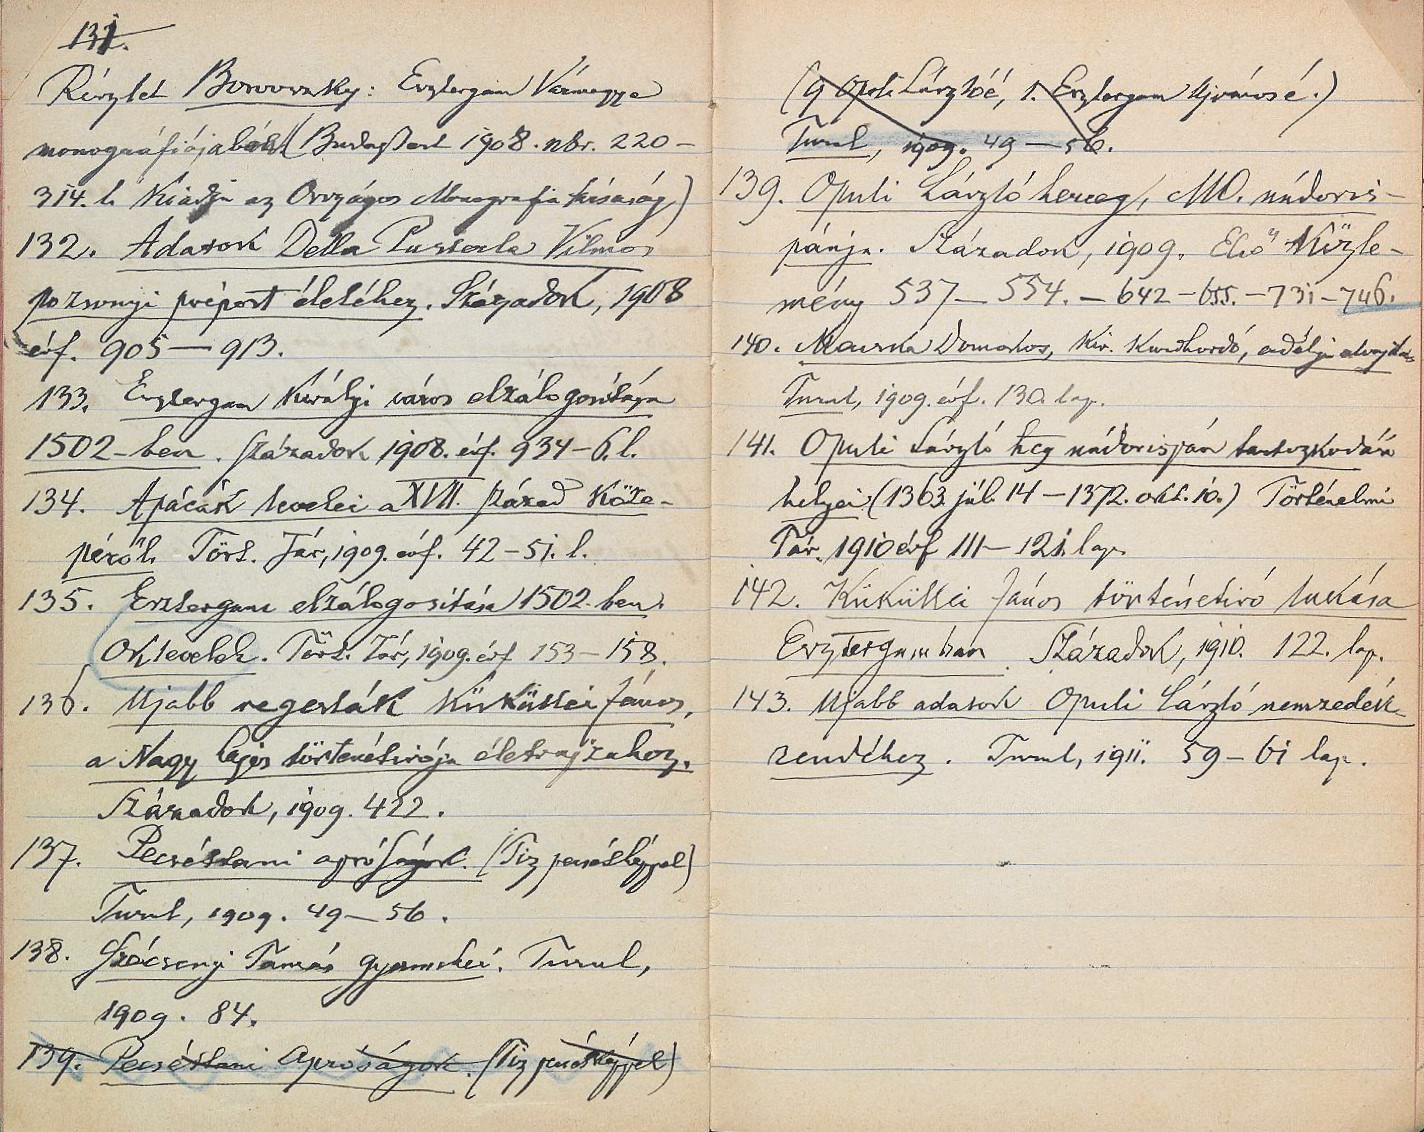 131.
Részlet Borovszky: Esztergom Vármegye
monográfiájából (Budapest 1908. nbr. 220—
314. l. Kiadja az Országos Monografia társaság)
132. Adatok Della Pusterla Vilmos
pozsonyi prépost életéhez. Századok, 1908
évf. 905—913.
133. Esztergom királyi város elzálogosítása
1502-ben. Századok 1908. évf. 934—6. l.
134. Apácák levelei a XVII. század köze-
péről. Tört. Tár, 1909. évf. 42—51. l.
135. Esztergom elzálogosítása 1502. ben.
Oklevelek. Tört. Tár, 1909. évf 153—158.
136. Ujabb regesták Küküllei János,
a Nagy Lajos történetirója életrajzához.
Századok, 1909. 422.
137. Pecséttani apróságok. (Tiz pecsétképpel)
Turul, 1909. 49—56.
138. Szécsenyi Tamás gyermekei. Turul,
1909. 84.
139. Pecséttani Apróságok. (Tiz pecsétképpel)
(9 Opuli Lászlóé, 1. Esztergom Ujvárosé.)
Turul, 1909. 49—56.
139. Opuli László herceg, MO. nádoris-
pánja. Századok, 1909. Első Közle-
mény 537—554.—642—655.—731—746.
140. Domokos, kir. kardhordó, erdélyi alvajda
Turul, 1909. évf. 130. lap.
141. Opuli László hcg nádorispán tartozkodási
helyei (1363. júl. 14—1372. okt. 10.) Történelmi
Tár. 1910 évf 111—121. lap.
142. Küküllei János történetiró lakása
Esztergomban Századok, 1910. 122. lap.
143. Ujabb adatok Opuli László nemzedék-
rendéhez. Turul, 1911. 59—61 lap.